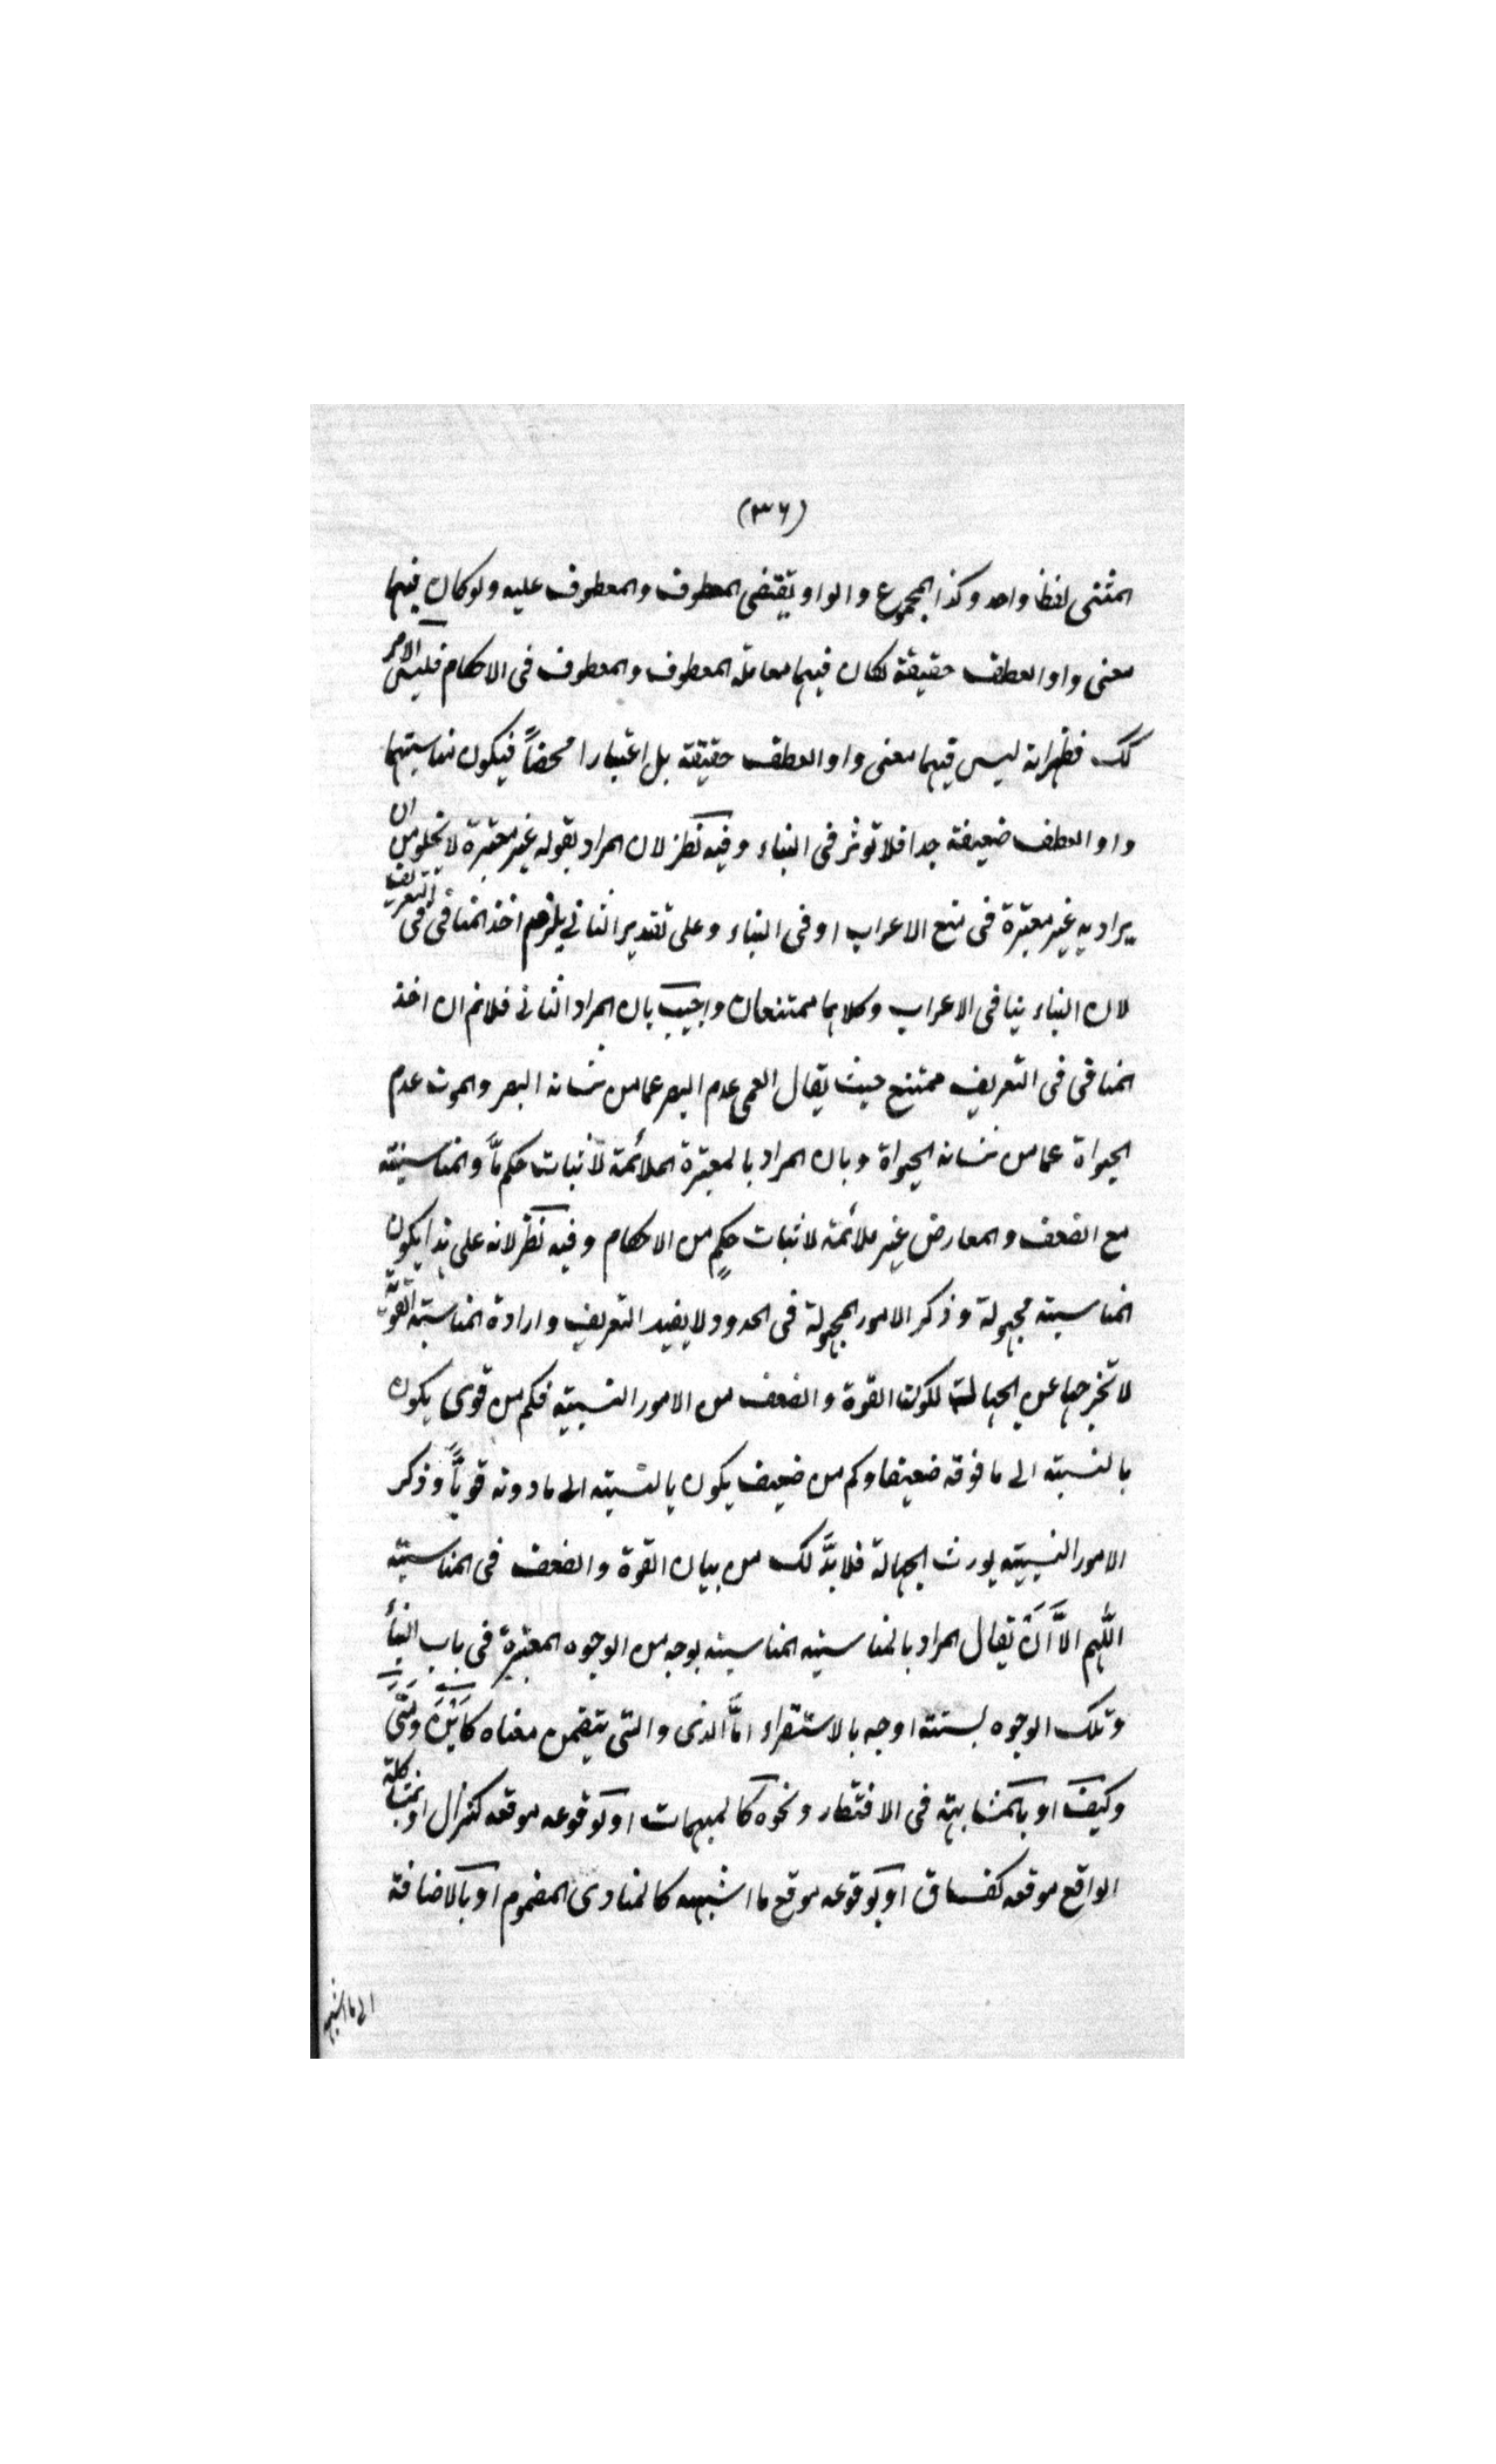 (٣٦)
المثنى لفظا واحد وكذا المجموع والواو يقتضى المعطوف والمعطوف عليه ولو كان فيهما
معنى واو العطف حقيقة لكان فيهما معاملة المعطوف والمعطوف فى الاحكام فليس الامر
كك فظهر انه ليس فيهما معنى واو العطف حقيقة بل اعتبارا محضاً فيكون مناسبتهما
واو العطف ضعيفة جدا فلا توثر فى البناء وفيه نظر لان المراد بقوله غير معتبرة لا يخلو من ان
يراد به غير معتبرة فى منع الاعراب او فى البناء وعلى تقدير الثانى يلزم اخذ المنافى فى التعريف
لان البناء ينافى الاعراب وكلاهما ممتنعان واجيب بان المراد الثانى فلانم ان اخذ
المنافى فى التعريف ممتنع حيث يقال العمى عدم البصر عما من شانه البصر والموت عدم
الحيواة عما من شانه الحيواة وبان المراد بالمعتبرة الملائمة لاثبات حكم ما والمناسبة
مع الضعف والمعارض غير ملائمة لاثبات حكمٍ من الاحكام وفيه نظر لانه على هذا يكون
المناسبة مجهولة وذكر الامور المجهولة فى الحدود لا يفيد التعريف وارادة المناسبة القويَّة
لا تخرجها عن الجهالة لكون القوة والضعف من الامور النسبية فكم من قوى يكون
بالنسبة الى ما فوقه ضعيفا وكم من ضعيف يكون بالنسبة الى ما دونه قويّاً وذكر
الامور النسبية يورث الجهالة فلا بدَّ لك من بيان القوة والضعف فى المناسبة
اللّٰهم الاَّ اَنْ يقال المراد بالمناسبة المناسبة بوجه من الوجوه المعتبرة فى باب البناء
وتلك الوجوه بستة اوجه بالاستقراء امَّا الذى والتى يتضمن معناه كاَيْنَ ومَتَى
وكيفَ او بالمشابهة فى الافتقار ونحوه كالمبهمات او لوقوعه موقعه كنزال او بمشاكلة
الواقع موقعه كفساق او لوقوعه موقع ما اشبهه كالمنادى المضموم او بالاضافة
الى ما اشبهه